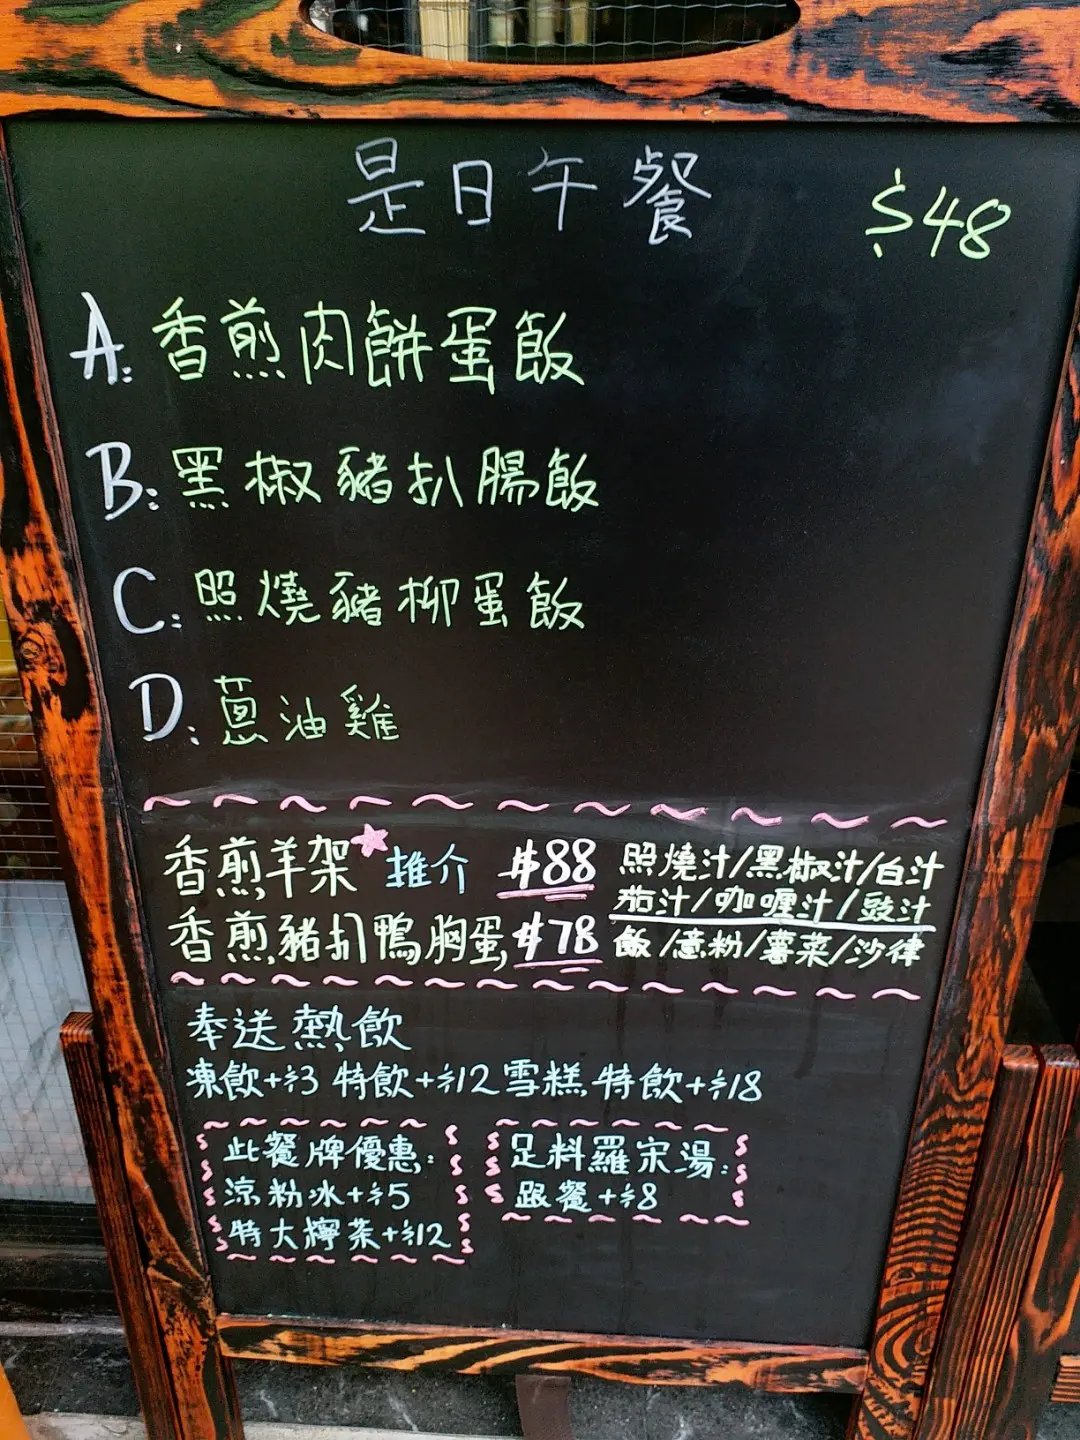 是日午餐 $48
A: 香煎肉餅蛋飯
B: 黑椒豬扒腸飯
C: 照燒豬柳蛋飯
D: 蔥油雞
香煎羊架 推介 $88
香煎豬扒鴨胸蛋 $78
照燒汁/黑椒汁/白汁
茄汁/咖喱汁/豉汁
飯/意粉/薯菜/沙律
奉送熱飲
凍飲+$3 特飲+$12 雪糕特飲+$18
此餐牌優惠:
涼粉冰+$5
特大檸茶+$12
足料羅宋湯:
跟餐+$8